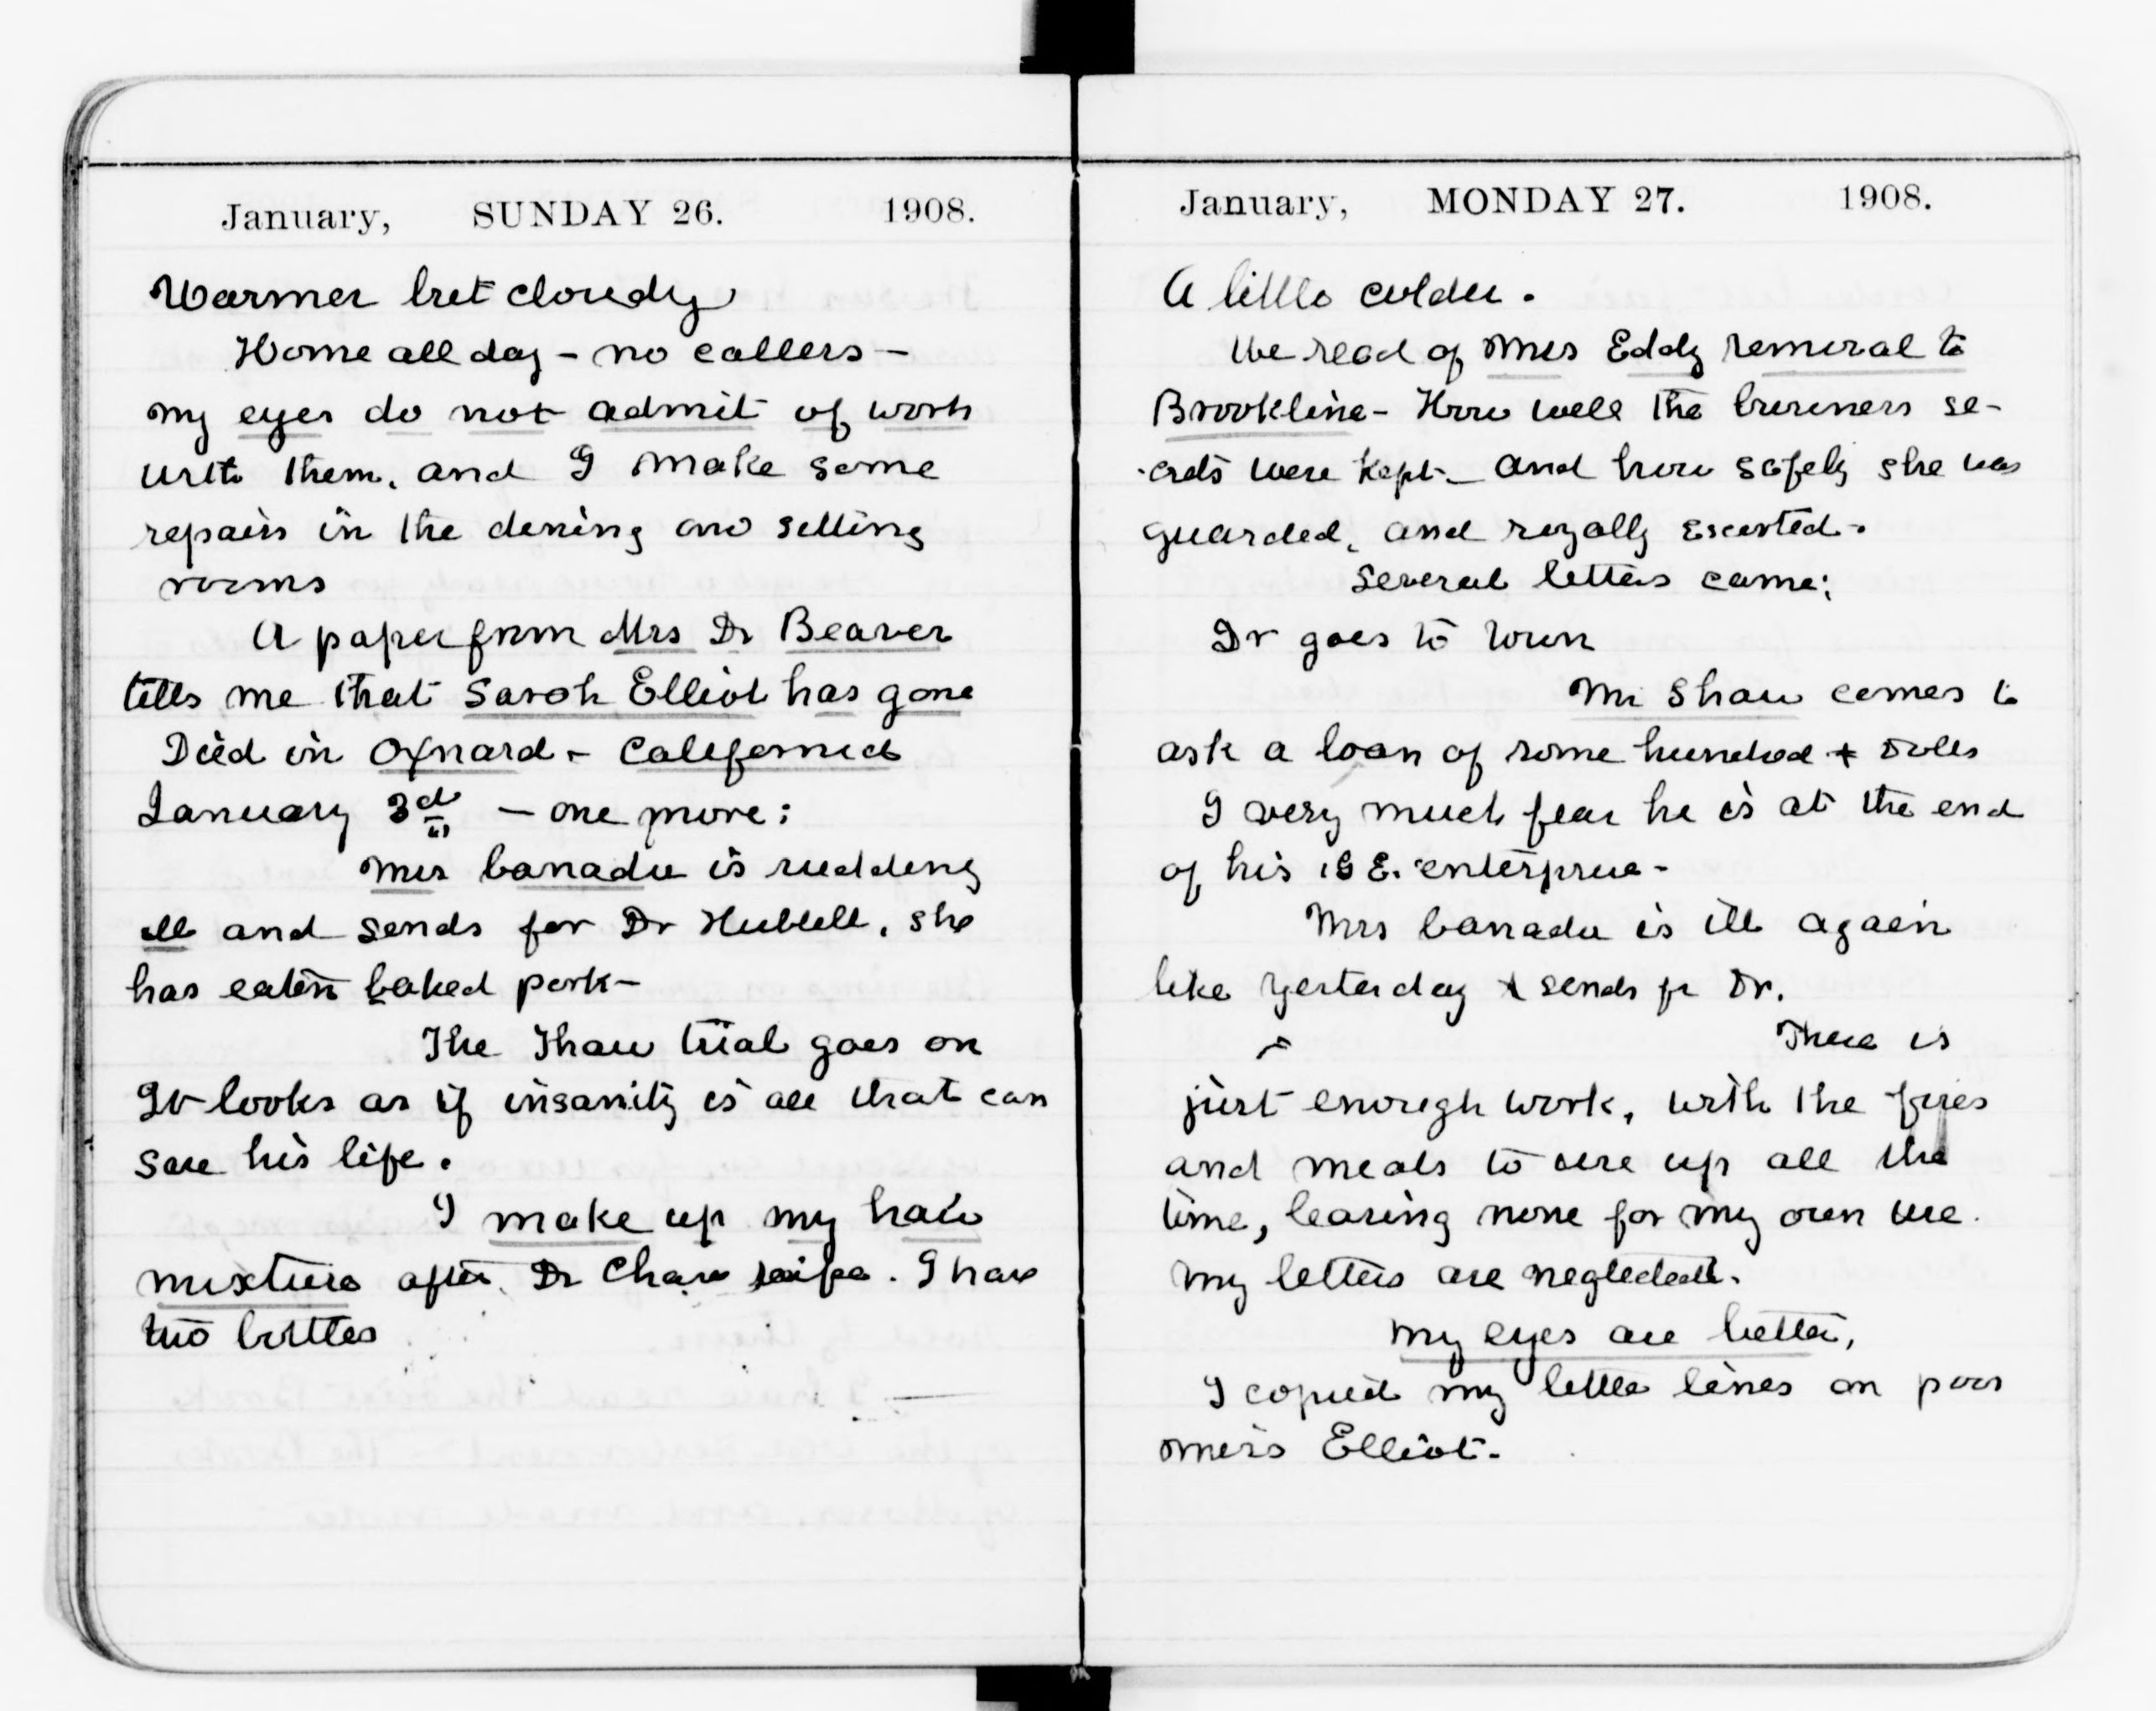 January, SUNDAY 26. 1908.
Warmer but cloudy
Home all day - no callers -
my eyes do not admit of work
with them, and I make some
repairs in the dening and sitting
rooms
A paper from Mrs Dr Beaver
tells me that Sarah Elliot has gone
Died in Oxnard - California
January 3d - one more;
Mrs Canada is suddenly
ill and sends for Dr Hubbell, she
has eaten baked pork -
The Thaw trial goes on
It looks as if insanity is all that can
save his life.
I make up my hair
mixture after Dr Chase . I have
two bottles
January, MONDAY 27. 1908.
A little colder.
We read of Mrs Eddy removal to
Brookline - How well the business se-
crets were kept - and how safely she was
guarded, and royally escorted -
Several letters came;
Dr goes to town
Mr Shaw comes to
ask a loan of some hundred + dolls
I very much fear he is at the end
of his enterprise -
Mrs Canada is ill again
like yesterday & sends fr Dr.
There is
just enough work, with the fires
and meals to use up all the
time, leaving none for my own use.
My letters are neglected.
My eyes are better,
I copied my little lines on poor
Mrs Elliot.